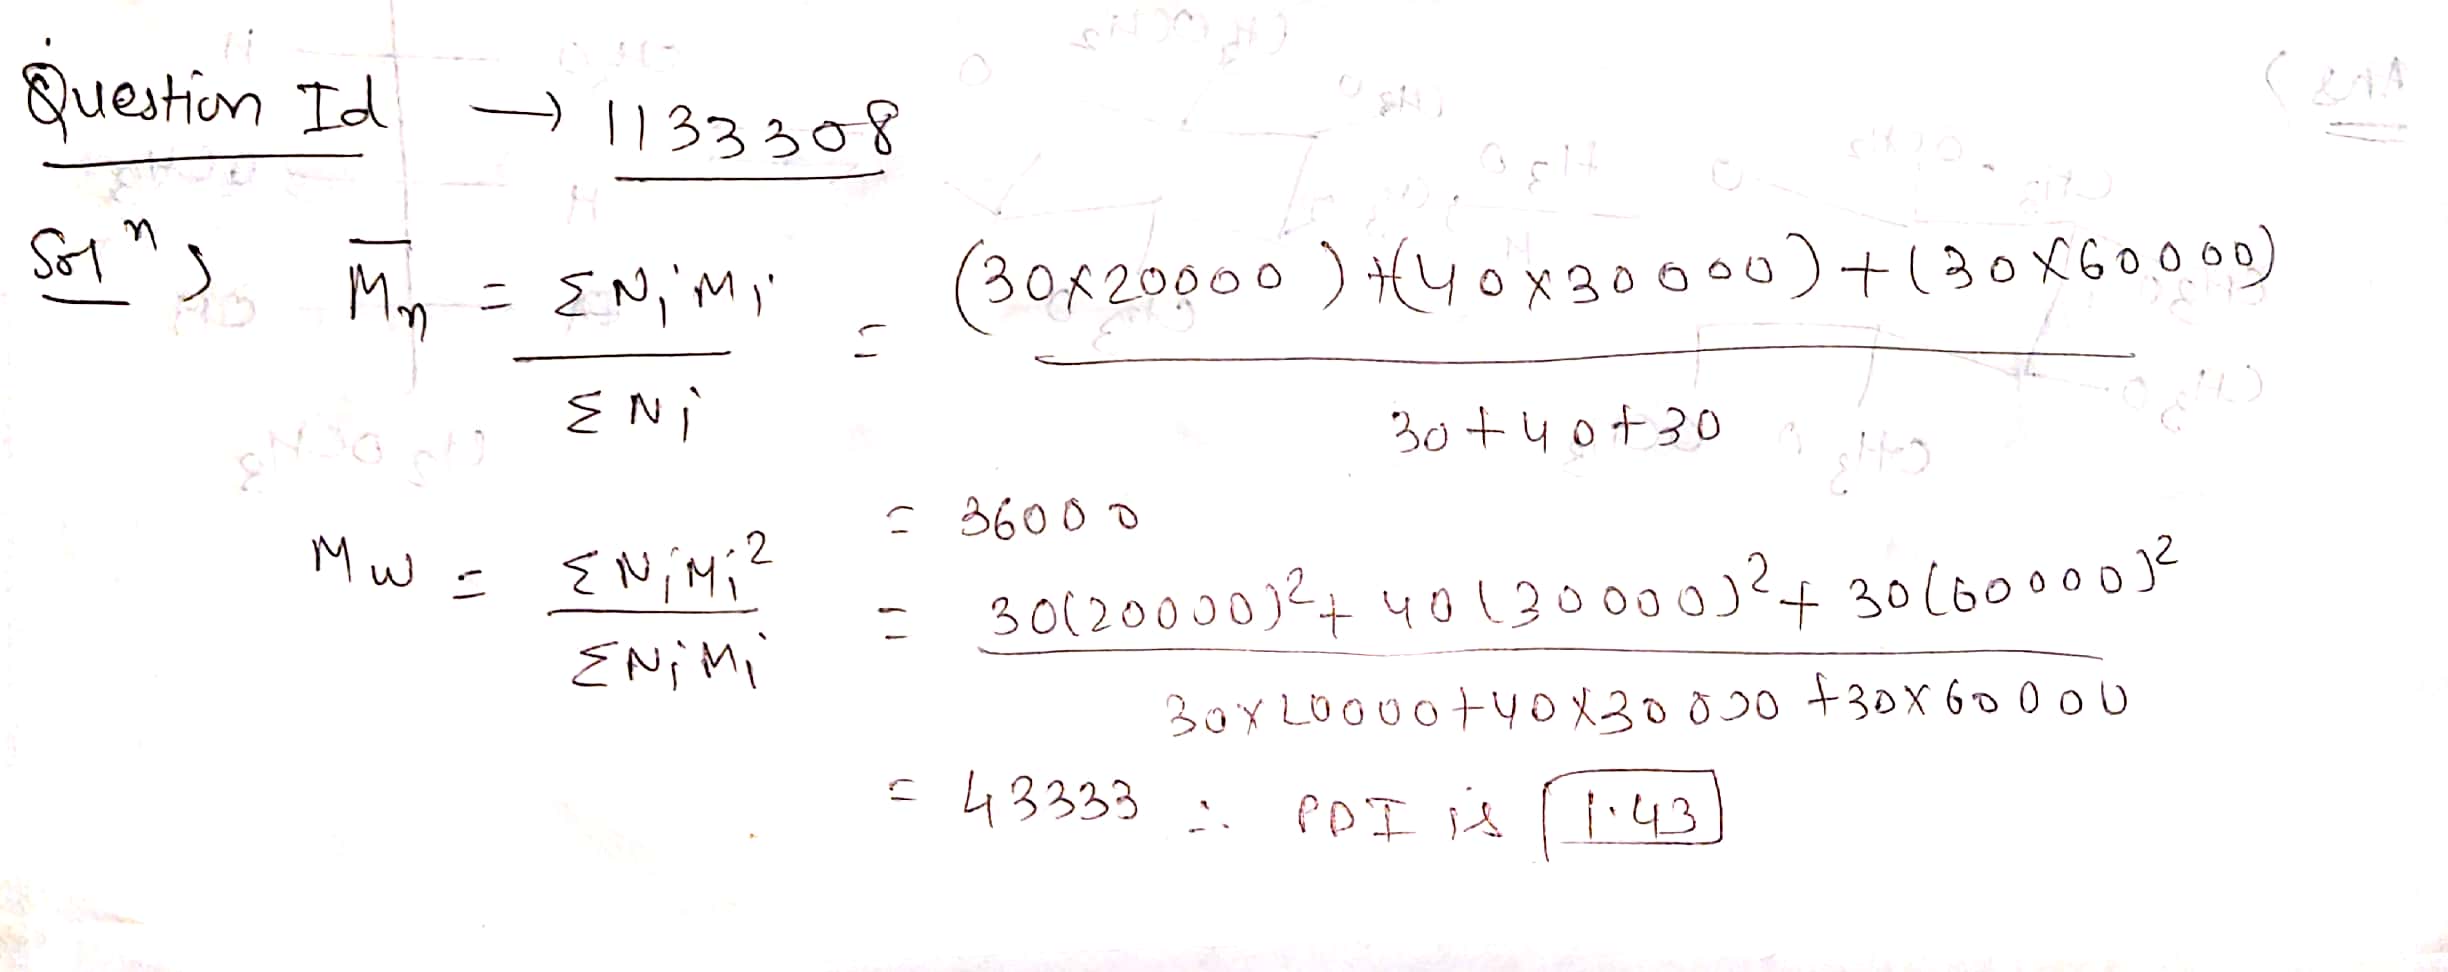 Question Id → 1133308
Solⁿ, M̅n = ΣNiMi / ΣNi = (30×20000)+(40×30000)+(30×60000) / 30+40+30
= 36000
Mw = ΣNiMi² / ΣNiMi = 30(20000)²+40(30000)²+30(60000)² / 30×20000+40×30000+30×60000
= 43333 ∴ PDI is 1.43